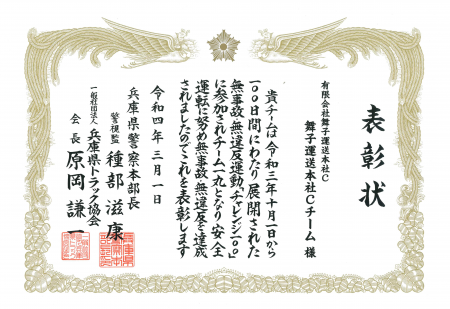 表彰状
有限会社舞子運送本社C
舞子運送本社Cチーム 様
貴チームは令和三年十月一日から
一〇〇日間にわたり展開された
無事故・無違反運動「チャレンジ一〇〇」
に参加されチーム一丸となり安全
運転に努め無事故・無違反を達成
されましたのでこれを表彰します
令和四年三月一日
兵庫県警察本部長
警視監 種部滋康
一般社団法人 兵庫県トラック協会
会長 原岡謙一